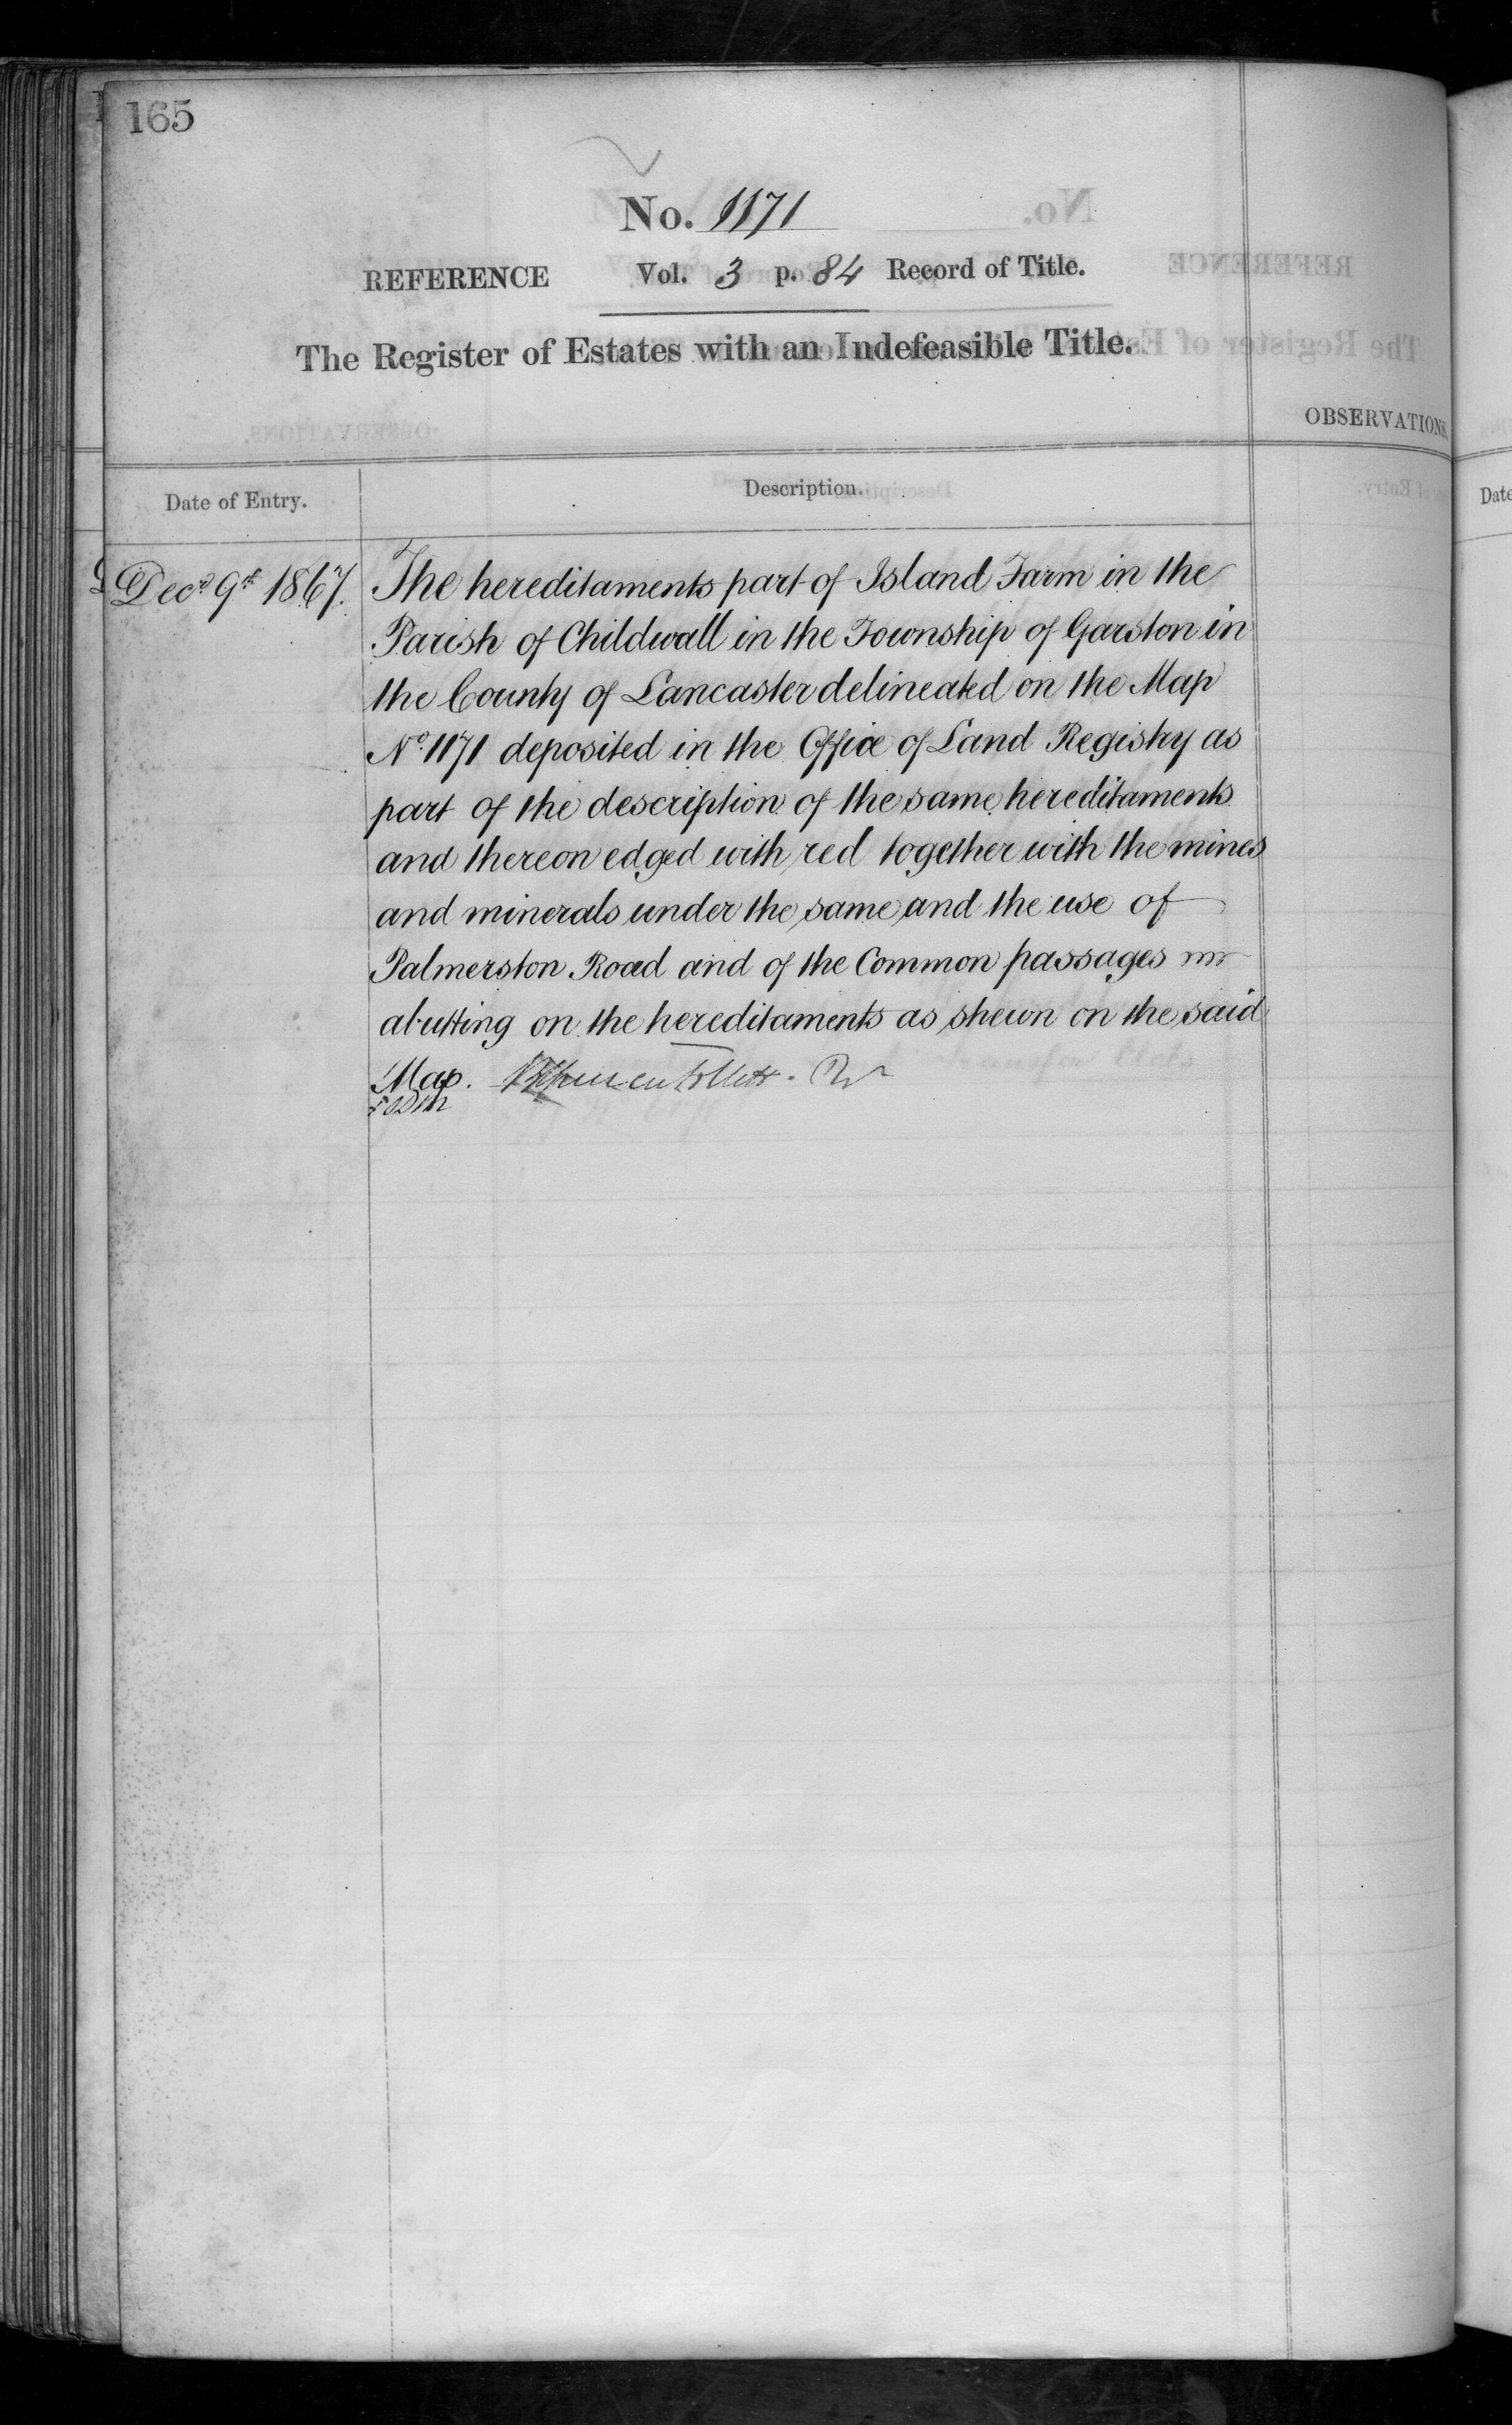 165
No. 1171
REFERENCE Vol. 3 p. 84 Record of Title.
The Register of Estates with an Indefeasible Title.
OBSERVATIONS.
Date of Entry.
Description.
Decr 9th 1867.
The hereditaments part of Island Farm in the
Parish of Childwall in the Township of Garston in
the County of Lancaster delineated on the Map
No. 1171 deposited in the Office of Land Registry as
part of the description of the same hereditaments
and thereon edged with red together with the mines
and minerals under the same and the use of
Palmerston Road and of the Common passages
abutting on the hereditaments as shewn on the said
Map.
Date